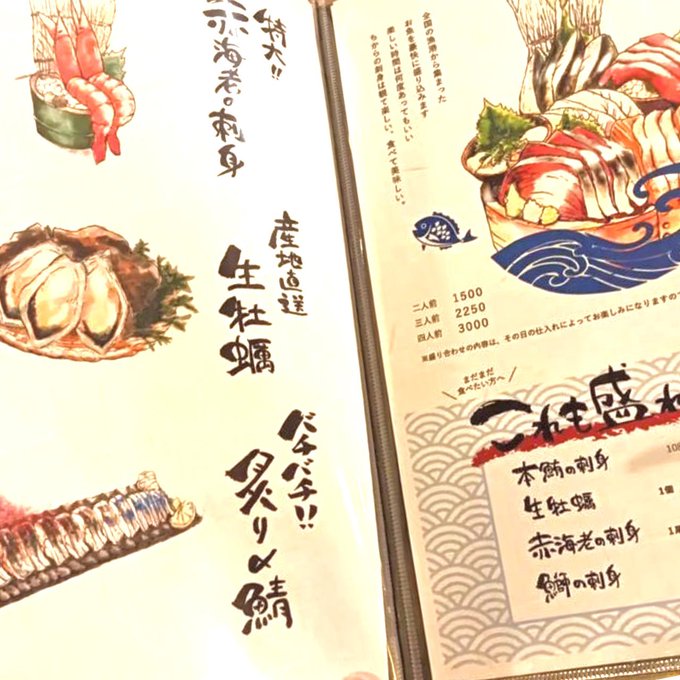 特大!!
赤海老の刺身
産地直送
生牡蠣
バチバチ!!
炙り〆鯖
全国の漁港から集まった
お魚を豪快に盛り込みます
楽しい時間は何度あってもいい
ちからの刺身は観て楽しい。食べて美味しい。
二人前 1500
三人前 2250
四人前 3000
※盛り合わせの内容は、その日の仕入れによってお楽しみになりますので
まだまだ
食べたい方へ
これも盛れ
本鮪の刺身 108
生牡蠣 1個
赤海老の刺身 1尾
鰤の刺身